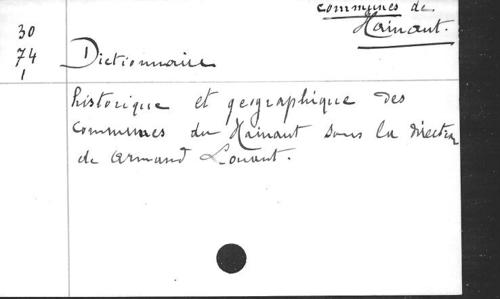 communes de
Hainaut.
30
74
1
Dictionnaire
historique et geographique des
Communes du Hainaut sous la direction
de Armand Louant.